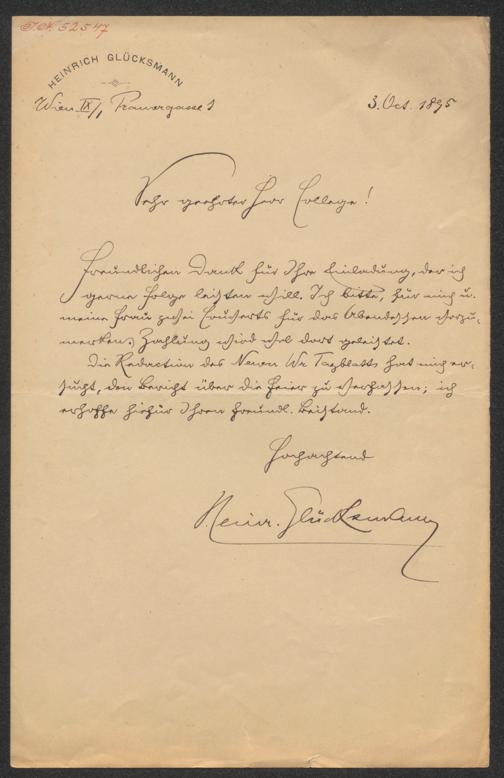 J.N. 52547
HEINRICH GLÜCKSMANN
Wien IX/1, Pramergasse 1
3. Oct. 1895
Sehr geehrter Herr College!
Freundlichen Dank für Ihre Einladung, der ich
gerne Folge leisten will. Ich bitte, für mich u.
meine Frau zwei Couverts für das Abendessen vorzu-
merken; Zahlung wird wol dort geleistet.
Die Redaction des Neuen Wr Tagblatts hat mich er-
sucht, den Bericht über die Feier zu verfassen; ich
erhoffe hiefür Ihren freundl. Beistand.
Hochachtend
Heinr. Glücksmann